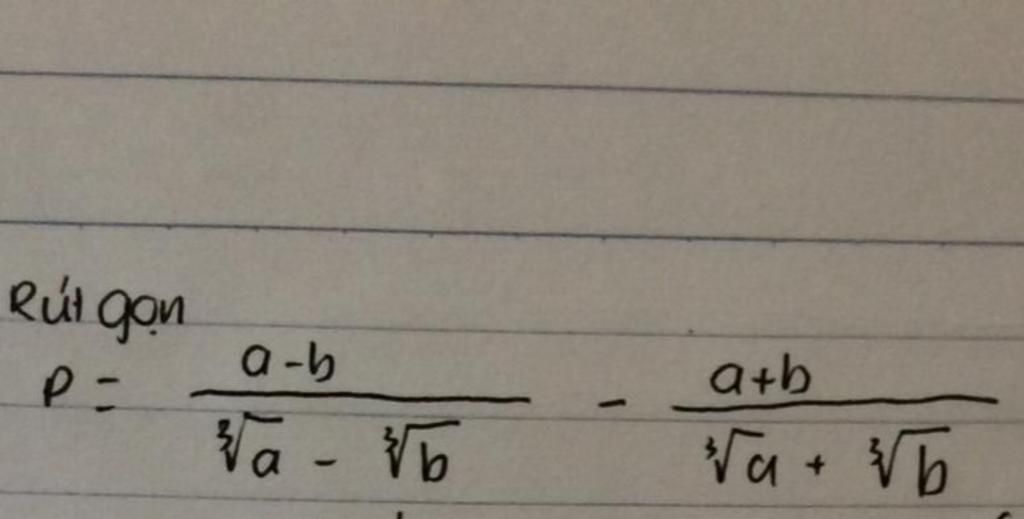 Rút gọn
P = \frac{a-b}{\sqrt[3]{a} - \sqrt[3]{b}} - \frac{a+b}{\sqrt[3]{a} + \sqrt[3]{b}}